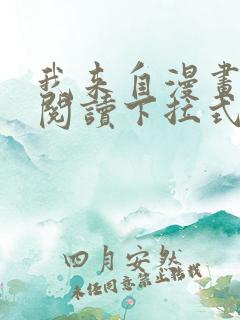 我来自漫畫
閱讀下拉式
四月安然
未经同意禁止轉載